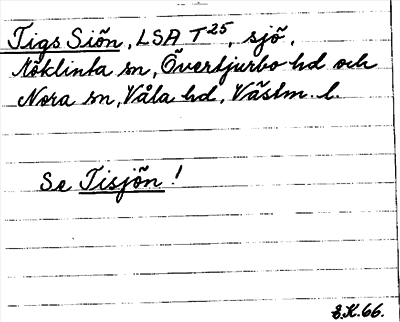 Tigs Siön, LSA T²⁵, sjö,
Möklinta sn, Övertjurbo hd och
Nora sn, Våla hd, Västm. l.
Se Tisjön!
E.K.66.